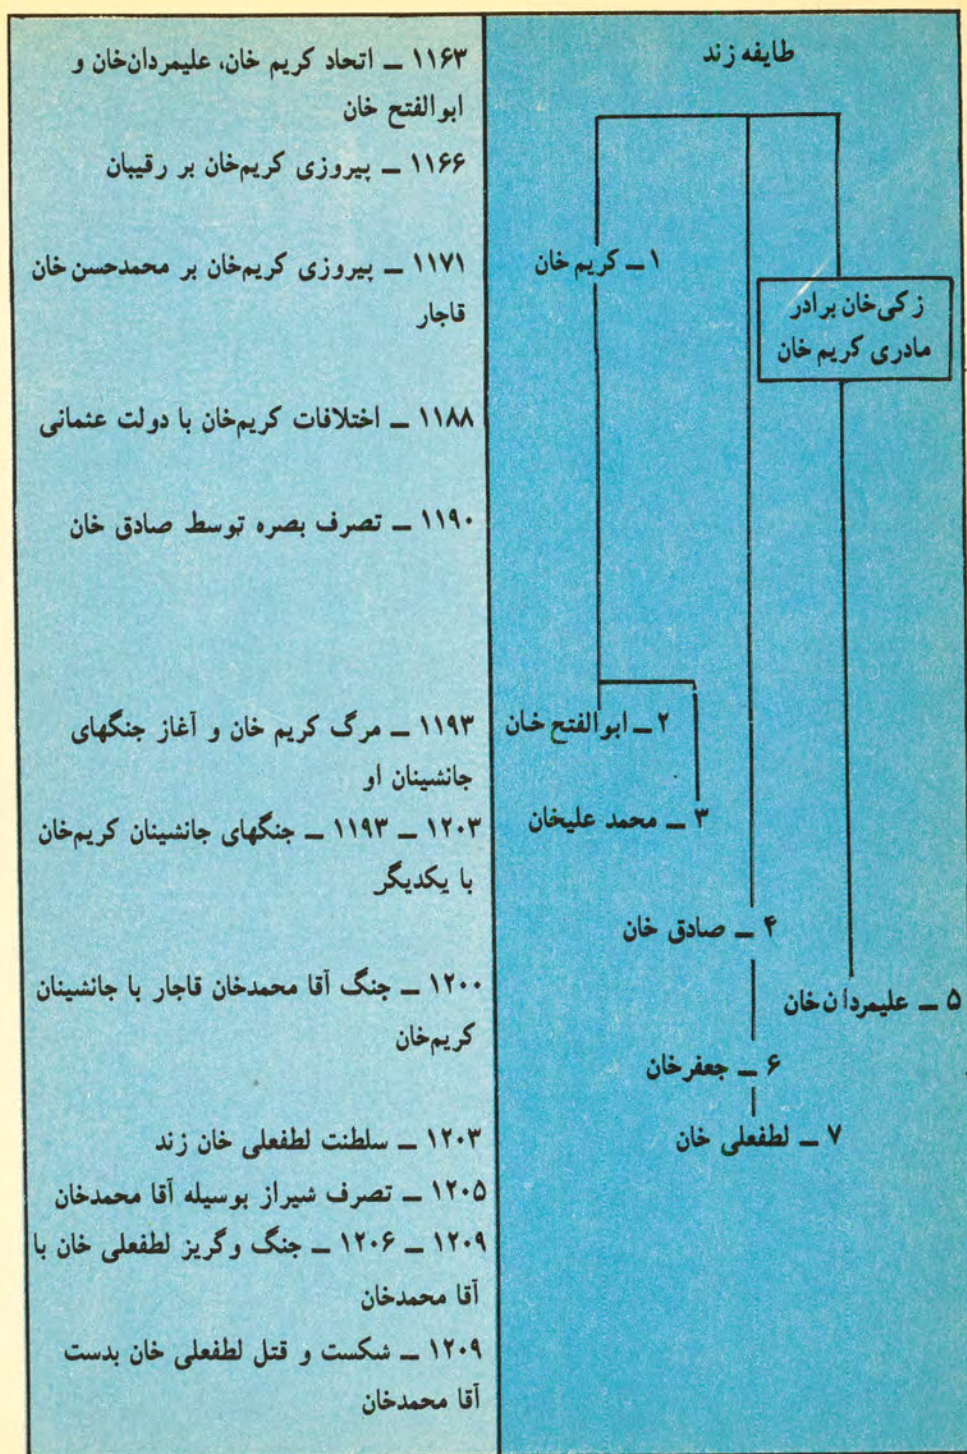 طایفه زند
۱ ـ کریم خان
زکی‌خان برادر
مادری کریم خان
۲ ـ ابوالفتح خان
۳ ـ محمد علیخان
۴ ـ صادق خان
۵ ـ علیمردان‌خان
۶ ـ جعفرخان
۷ ـ لطفعلی خان
۱۱۶۳ ـ اتحاد کریم خان، علیمردان‌خان و
ابوالفتح خان
۱۱۶۶ ـ پیروزی کریم‌خان بر رقیبان
۱۱۷۱ ـ پیروزی کریم‌خان بر محمدحسن خان
قاجار
۱۱۸۸ ـ اختلافات کریم‌خان با دولت عثمانی
۱۱۹۰ ـ تصرف بصره توسط صادق خان
۱۱۹۳ ـ مرگ کریم خان و آغاز جنگهای
جانشینان او
۱۲۰۳ ـ ۱۱۹۳ ـ جنگهای جانشینان کریم‌خان
با یکدیگر
۱۲۰۰ ـ جنگ آقا محمدخان قاجار با جانشینان
کریم‌خان
۱۲۰۳ ـ سلطنت لطفعلی خان زند
۱۲۰۵ ـ تصرف شیراز بوسیله آقا محمدخان
۱۲۰۹ ـ ۱۲۰۶ ـ جنگ و گریز لطفعلی خان با
آقا محمدخان
۱۲۰۹ ـ شکست و قتل لطفعلی خان بدست
آقا محمدخان